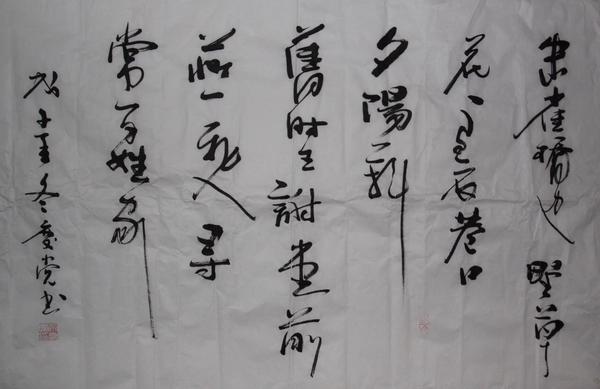 朱雀橋邊野草
花烏衣巷口
夕陽斜
舊时王謝堂前
燕飛入尋
常百姓家
子冬书